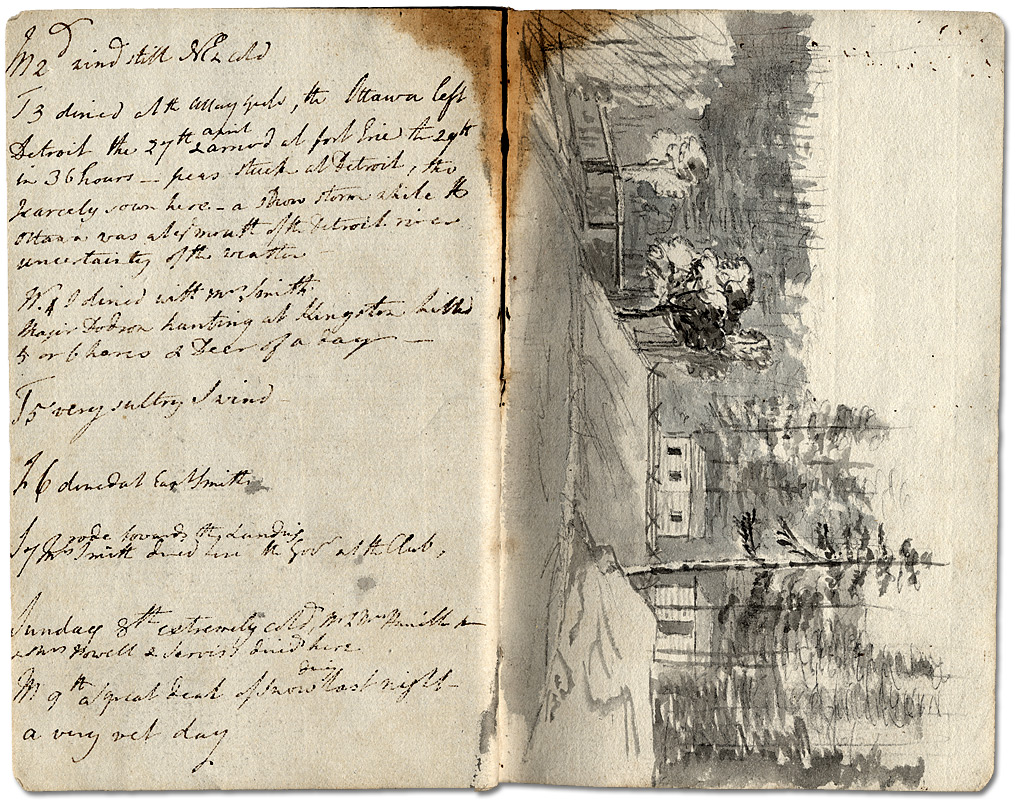 M 2d wind still NE cold
T 3 dined at the , the Ottawa left
Detroit the 27th april & arrived at fort Erie the 29th
in 36 hours — peas stuck at Detroit, the
scarcely sown here — a snow storm while the
Ottawa was at ye mouth of the Detroit river
uncertainty of the weather
W. 4 I dined with Mrs Smith
Major Dodson hunting at Kingston killed
5 or 6 hares & Deer of a day —
T 5 very sultry S wind
F 6 dined at Capt Smith
S 7 rode towards the Landing
Mrs Smith dined here the Govr at the Club,
Sunday 8th extremely cold Mr & Mrs
& Mrs Powell & dined here
M 9th a great deal of snow during last night
a very wet day